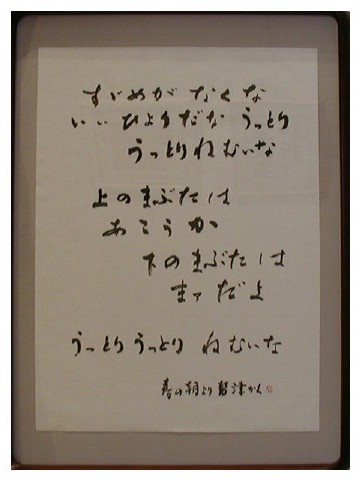 すゞめがなくな
いいひよりだな うっとり
うっとりねむいな
上のまぶたは
あこうか
下のまぶたは
まァだよ
うっとりうっとり ねむいな
春の朝より